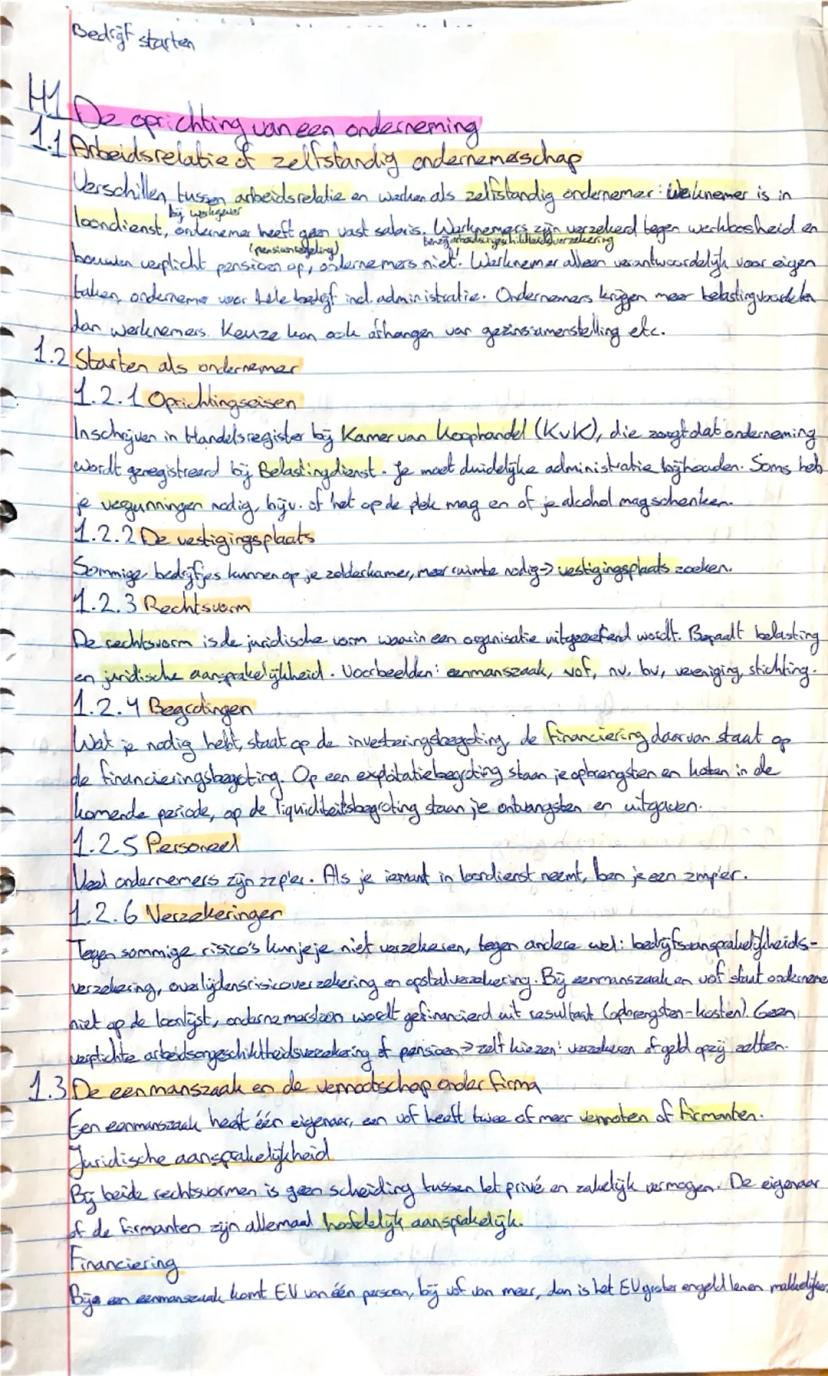 Bedrijf starten
H1 De oprichting van een onderneming
1.1 Arbeidsrelatie of zelfstandig ondernemerschap
Verschillen tussen arbeidsrelatie en werken als zelfstandig ondernemer: werknemer is in
bij werkgever
loondienst, ondernemer heeft geen vast salaris. Werknemers zijn verzekerd tegen werkloosheid en
(pensioenregeling)
bouwen verplicht pensioen op, ondernemers niet. Werknemer alleen verantwoordelijk voor eigen
taken, ondernemer voor hele bedrijf incl. administratie. Ondernemers krijgen meer belastingvoordelen
dan werknemers. Keuze kan ook afhangen van gezinssamenstelling etc.
1.2 Starten als ondernemer
1.2.1 Oprichtingseisen
Inschrijven in Handelsregister bij Kamer van Koophandel (KvK), die zorgt dat onderneming
wordt geregistreerd bij Belastingdienst. Je moet duidelijke administratie bijhouden. Soms heb
je vergunningen nodig, bijv. of het op de plek mag en of je alcohol mag schenken.
1.2.2 De vestigingsplaats
Sommige bedrijfjes kunnen op je zolderkamer, meer ruimte nodig -> vestigingsplaats zoeken.
1.2.3 Rechtsvorm
De rechtsvorm is de juridische vorm waarin een organisatie uitgeoefend wordt. Bepaalt belasting
en juridische aansprakelijkheid. Voorbeelden: eenmanszaak, vof, nv, bv, vereniging, stichting.
1.2.4 Begrotingen
Wat je nodig hebt, staat op de investeringsbegroting, de financiering daarvan staat op
de financieringsbegroting. Op een exploitatiebegroting staan je opbrengsten en kosten in de
komende periode, op de liquiditeitsbegroting staan je ontvangsten en uitgaven.
1.2.5 Personeel
Veel ondernemers zijn zzp'er. Als je iemand in loondienst neemt, ben je een zmp'er.
1.2.6 Verzekeringen
Tegen sommige risico's kun je je niet verzekeren, tegen andere wel: bedrijfsaansprakelijkheids-
verzekering, overlijdensrisicoverzekering en opstalverzekering. Bij eenmanszaak en vof staat ondernemer
niet op de loonlijst, ondernemersloon wordt gefinancierd uit resultaat (opbrengsten-kosten). Geen
verplichte arbeidsongeschiktheidsverzekering of pensioen -> zelf kiezen: verzekeren of geld opzij zetten.
1.3 De eenmanszaak en de vennootschap onder firma
Een eenmanszaak heeft één eigenaar, een vof heeft twee of meer vennoten of firmanten.
Juridische aansprakelijkheid
Bij beide rechtsvormen is geen scheiding tussen het privé en zakelijk vermogen. De eigenaar
of de firmanten zijn allemaal hoofdelijk aansprakelijk.
Financiering
Bij een eenmanszaak komt EV van één persoon, bij vof van meer, dan is het EV groter en geld lenen makkelijker.